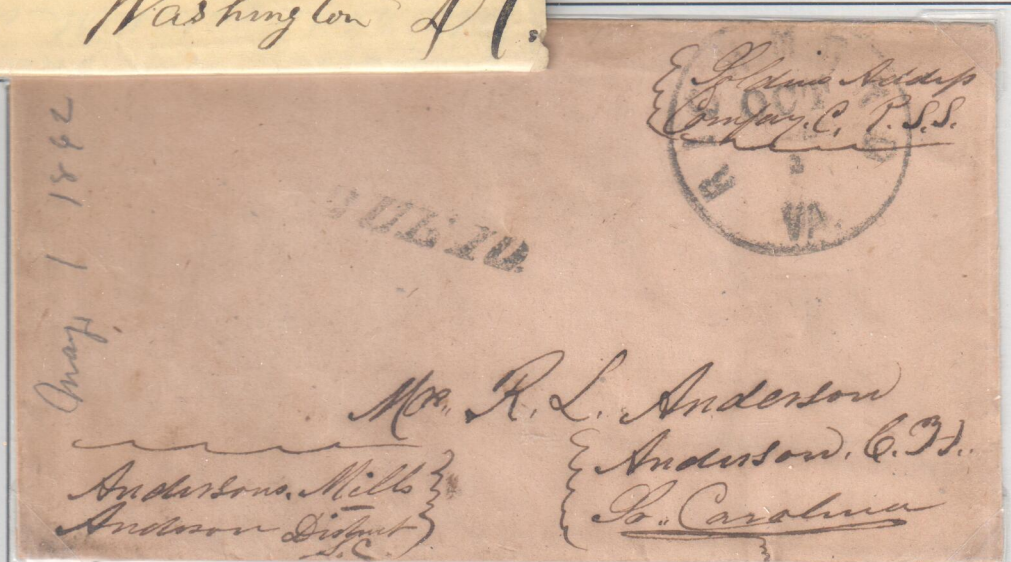 Washington
Soldiers Address
Company. C. P.S.S.
RICHMOND
OCT
VA.
DUE 10.
May 1 1862
Mrs. R. L. Anderson
Anderson. C. H.
So. Carolina
Andersons. Mills
Anderson District
S.C